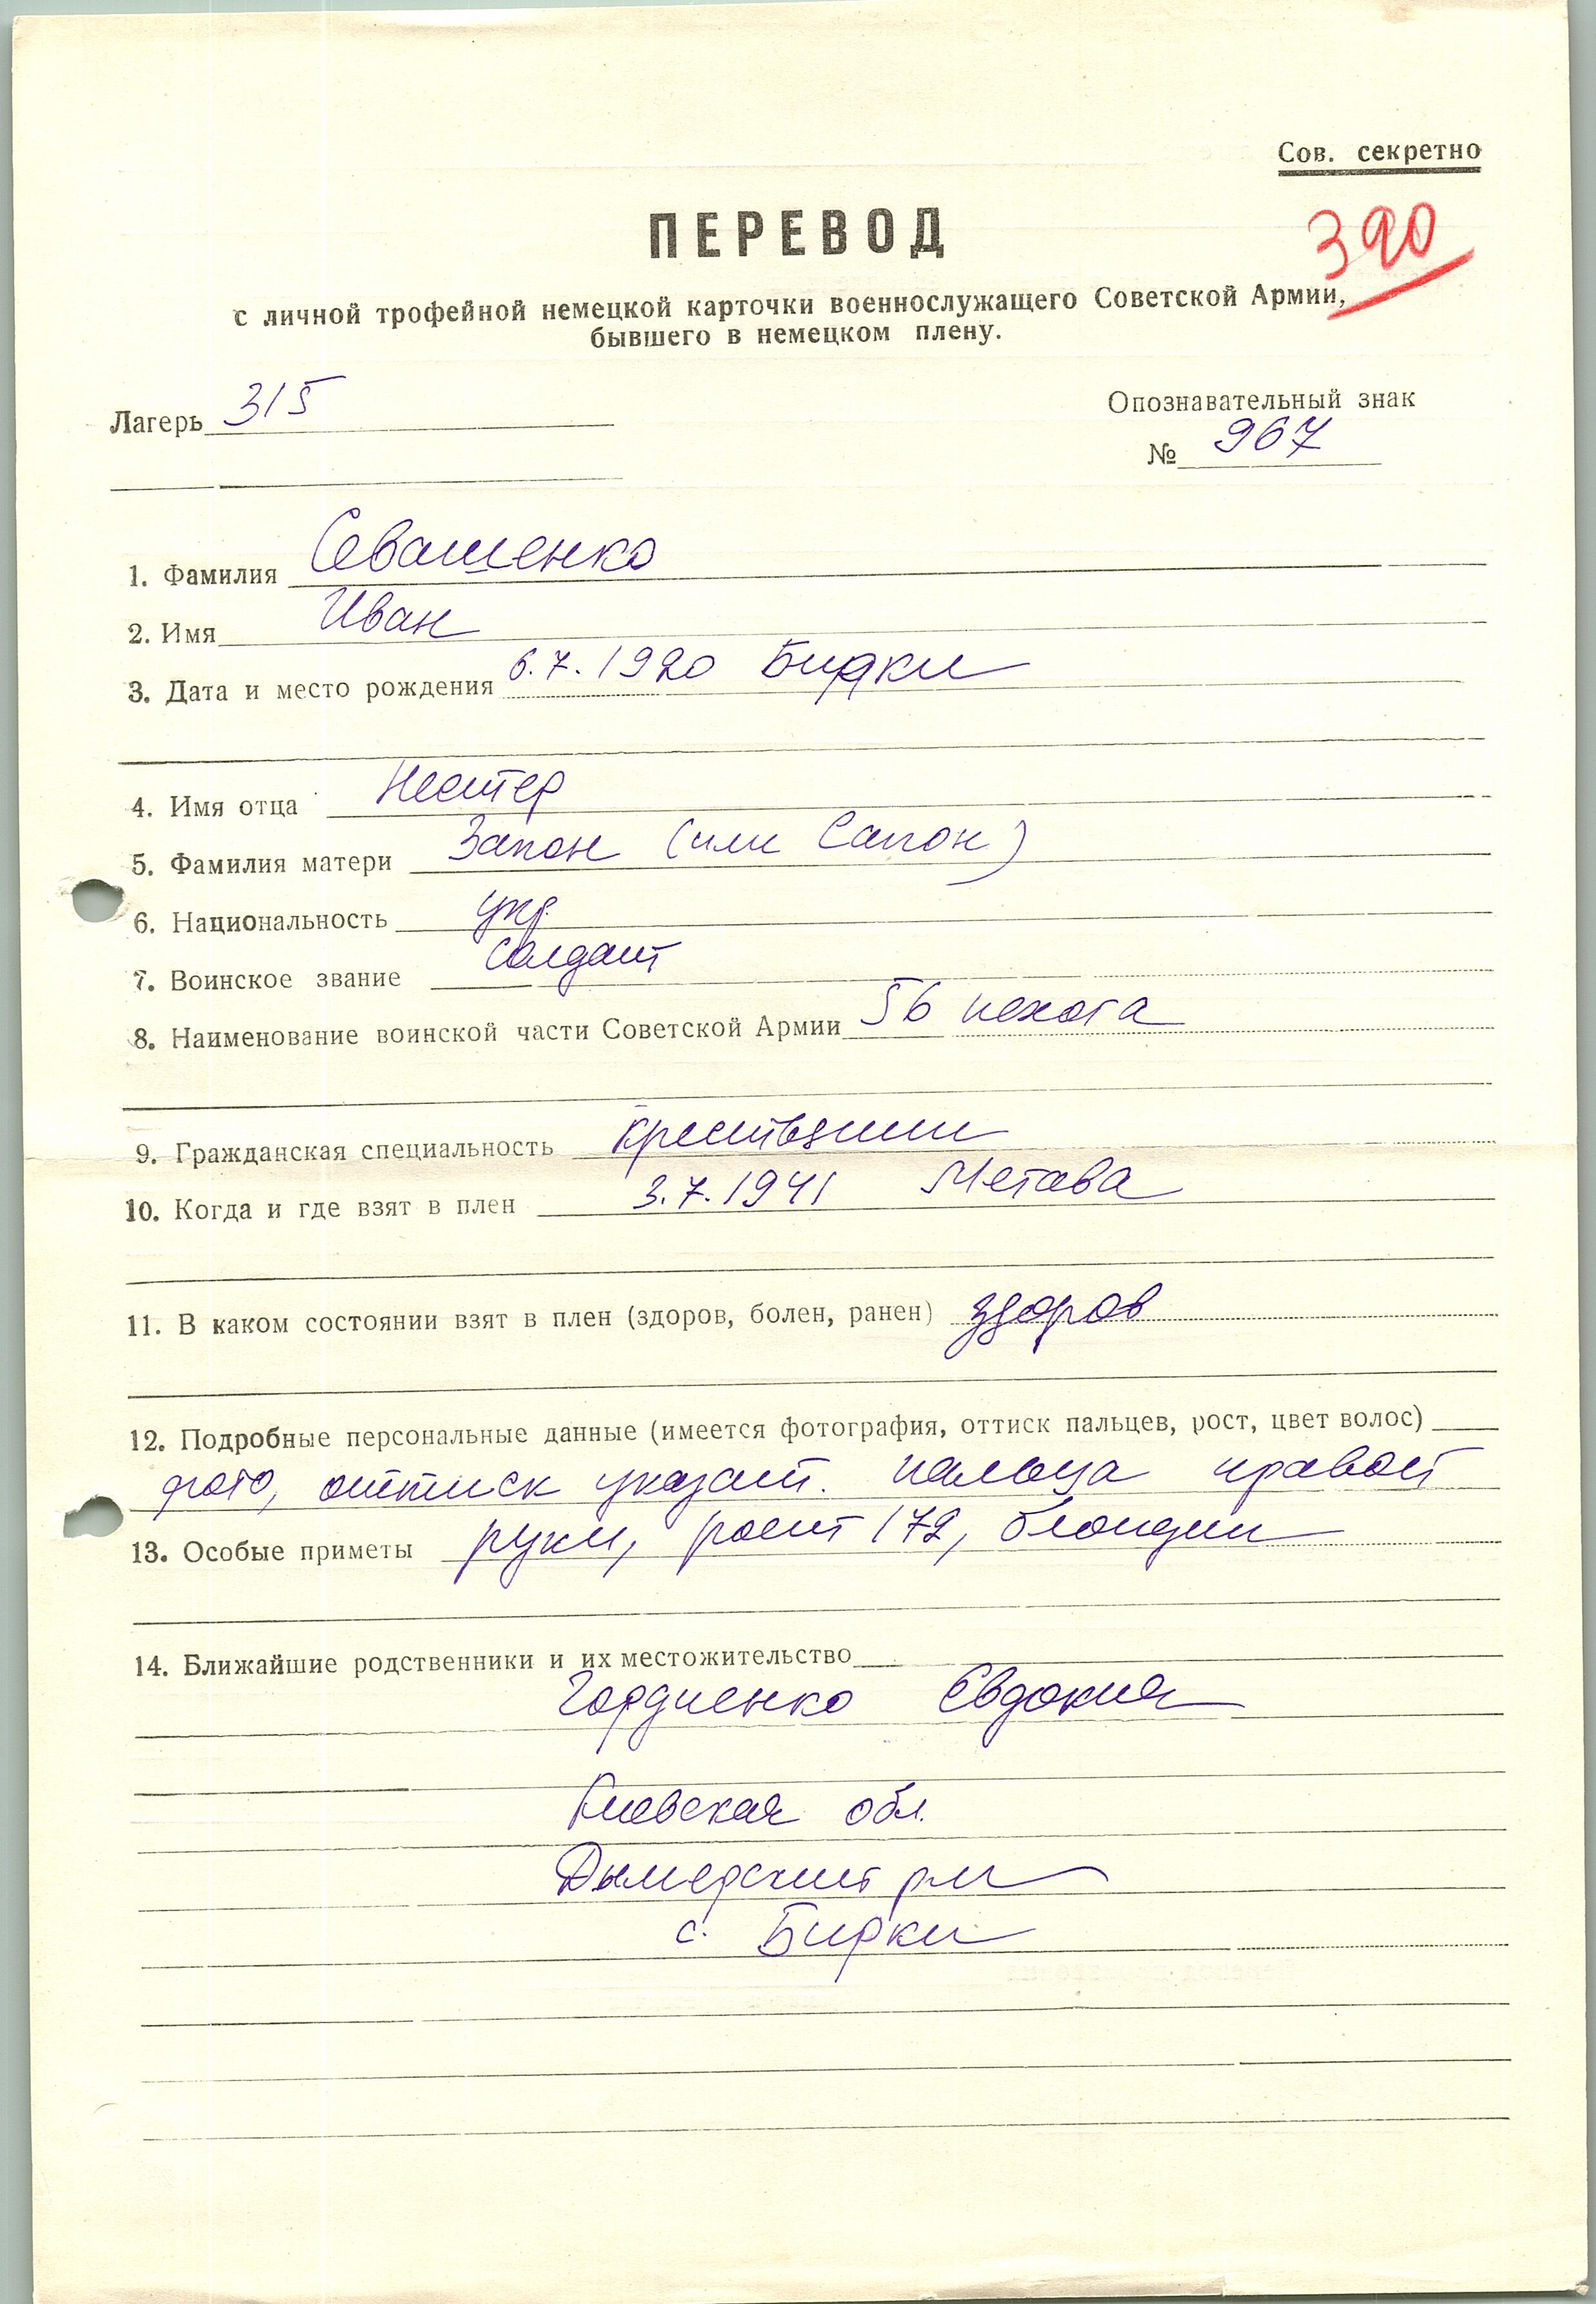 Сов. секретно
ПЕРЕВОД
390
с личной трофейной немецкой карточки военнослужащего Советской Армии,
бывшего в немецком плену.
Лагерь 315
Опознавательный знак
№ 967
1. Фамилия Севашенко
2. Имя Иван
3. Дата и место рождения 6.7.1920 Бирки
4. Имя отца Нестер
5. Фамилия матери Запон (или Сапон)
6. Национальность укр.
7. Воинское звание солдат
8. Наименование воинской части Советской Армии 56 пехота
9. Гражданская специальность крестьянин
10. Когда и где взят в плен 3.7.1941 Метава
11. В каком состоянии взят в плен (здоров, болен, ранен) здоров
12. Подробные персональные данные (имеется фотография, оттиск пальцев, рост, цвет волос)
фото, оттиск указат. пальца правой
13. Особые приметы руки, рост 172, блондин
14. Ближайшие родственники и их местожительство
Гордиенко Евдокия
Киевская обл.
Дымерский р-н
с. Бирки